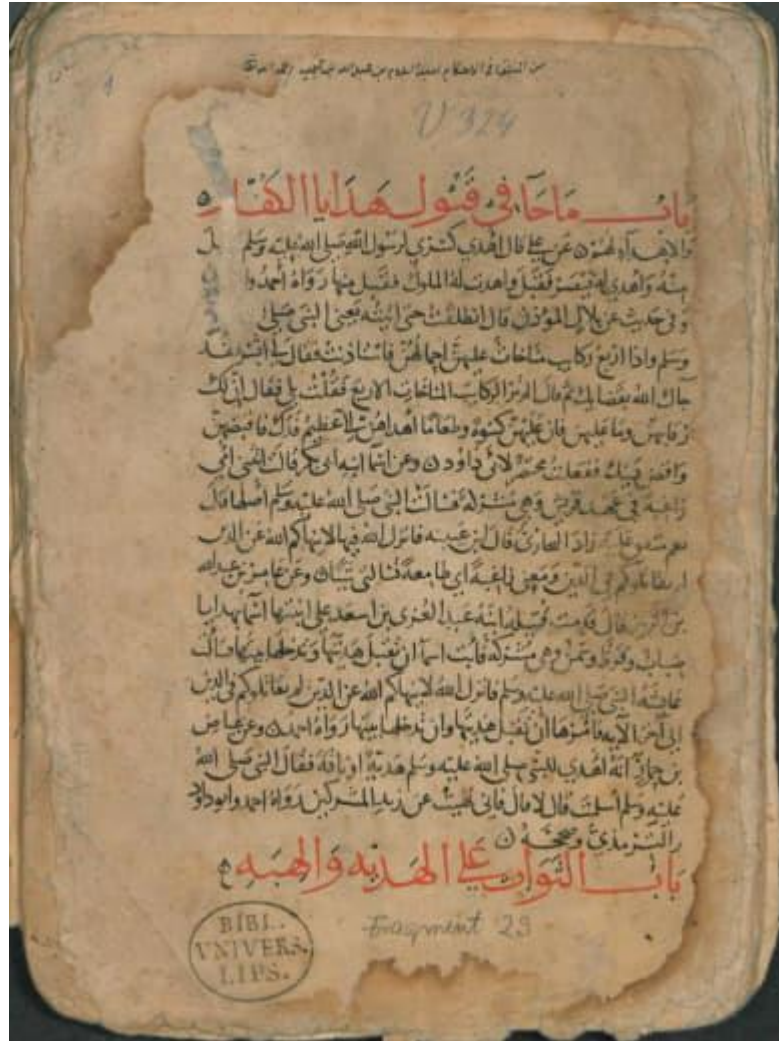 من المنتقى في الاحكام لعبد السلام بن عبد الله بن تيمية رحمه الله
V 324
باب ما جاء في قبول هدايا الكفار
والاهداء لهم عن علي قال اهدي كسرى لرسول الله صلى الله عليه وسلم
منه واهدى له قيصر فقبل واهدت له الملوك فقبل منها رواه احمد وا
وفي حديث عن بلال المؤذن قال انطلقت حتى اتيته يعني النبي صلى
وسلم واذا اربع ركايب مناخات عليهن احمالهن فاستاذنت فقال لي ابشر فقد
جاك الله بقضايك ثم قال الم تر الركايب المناخات الاربع فقلت بلى فقال ان لك
رقابهن وما عليهن فان عليهن كسوة وطعاما اهداهن الي عظيم فدك فاقبضهن
واقض دينك ففعلت مختصر لابي داود وعن اسما ابنة ابي بكر قالت اتتني امي
راغبة في عهد قريش وهي مشركة فسالت النبي صلى الله عليه وسلم اصلها قال
نعم متفق عليه زاد البخاري قال ابن عيينه فانزل الله فيها لا ينهاكم الله عن الذين
لم يقاتلوكم في الدين ومعنى راغبة اي طامعة تسالني شيا وعن عامر بن عبد الله
بن الزبير قال قدمت قتيلة ابنة عبد العزى بن اسعد على ابنتها اسما بهدايا
ضباب وقرظ وسمن وهي مشركة فابت اسما ان تقبل هديتها وتدخلها بيتها فسالت
عائشة النبي صلى الله عليه وسلم فانزل الله لا ينهاكم الله عن الذين لم يقاتلوكم في الدين
الى آخر الآية فامرها ان تقبل هديتها وان تدخلها بيتها رواه احمد وعن عياض
بن حمار انه اهدى للنبي صلى الله عليه وسلم هدية او ناقة فقال النبي صلى الله
عليه وسلم اسلمت قال لا قال فاني نهيت عن زبد المشركين رواه احمد وابو داود
والترمذي وصححه
باب الثواب على الهدية والهبة
Fragment 29
BIBL.
UNIVERS.
LIPS.